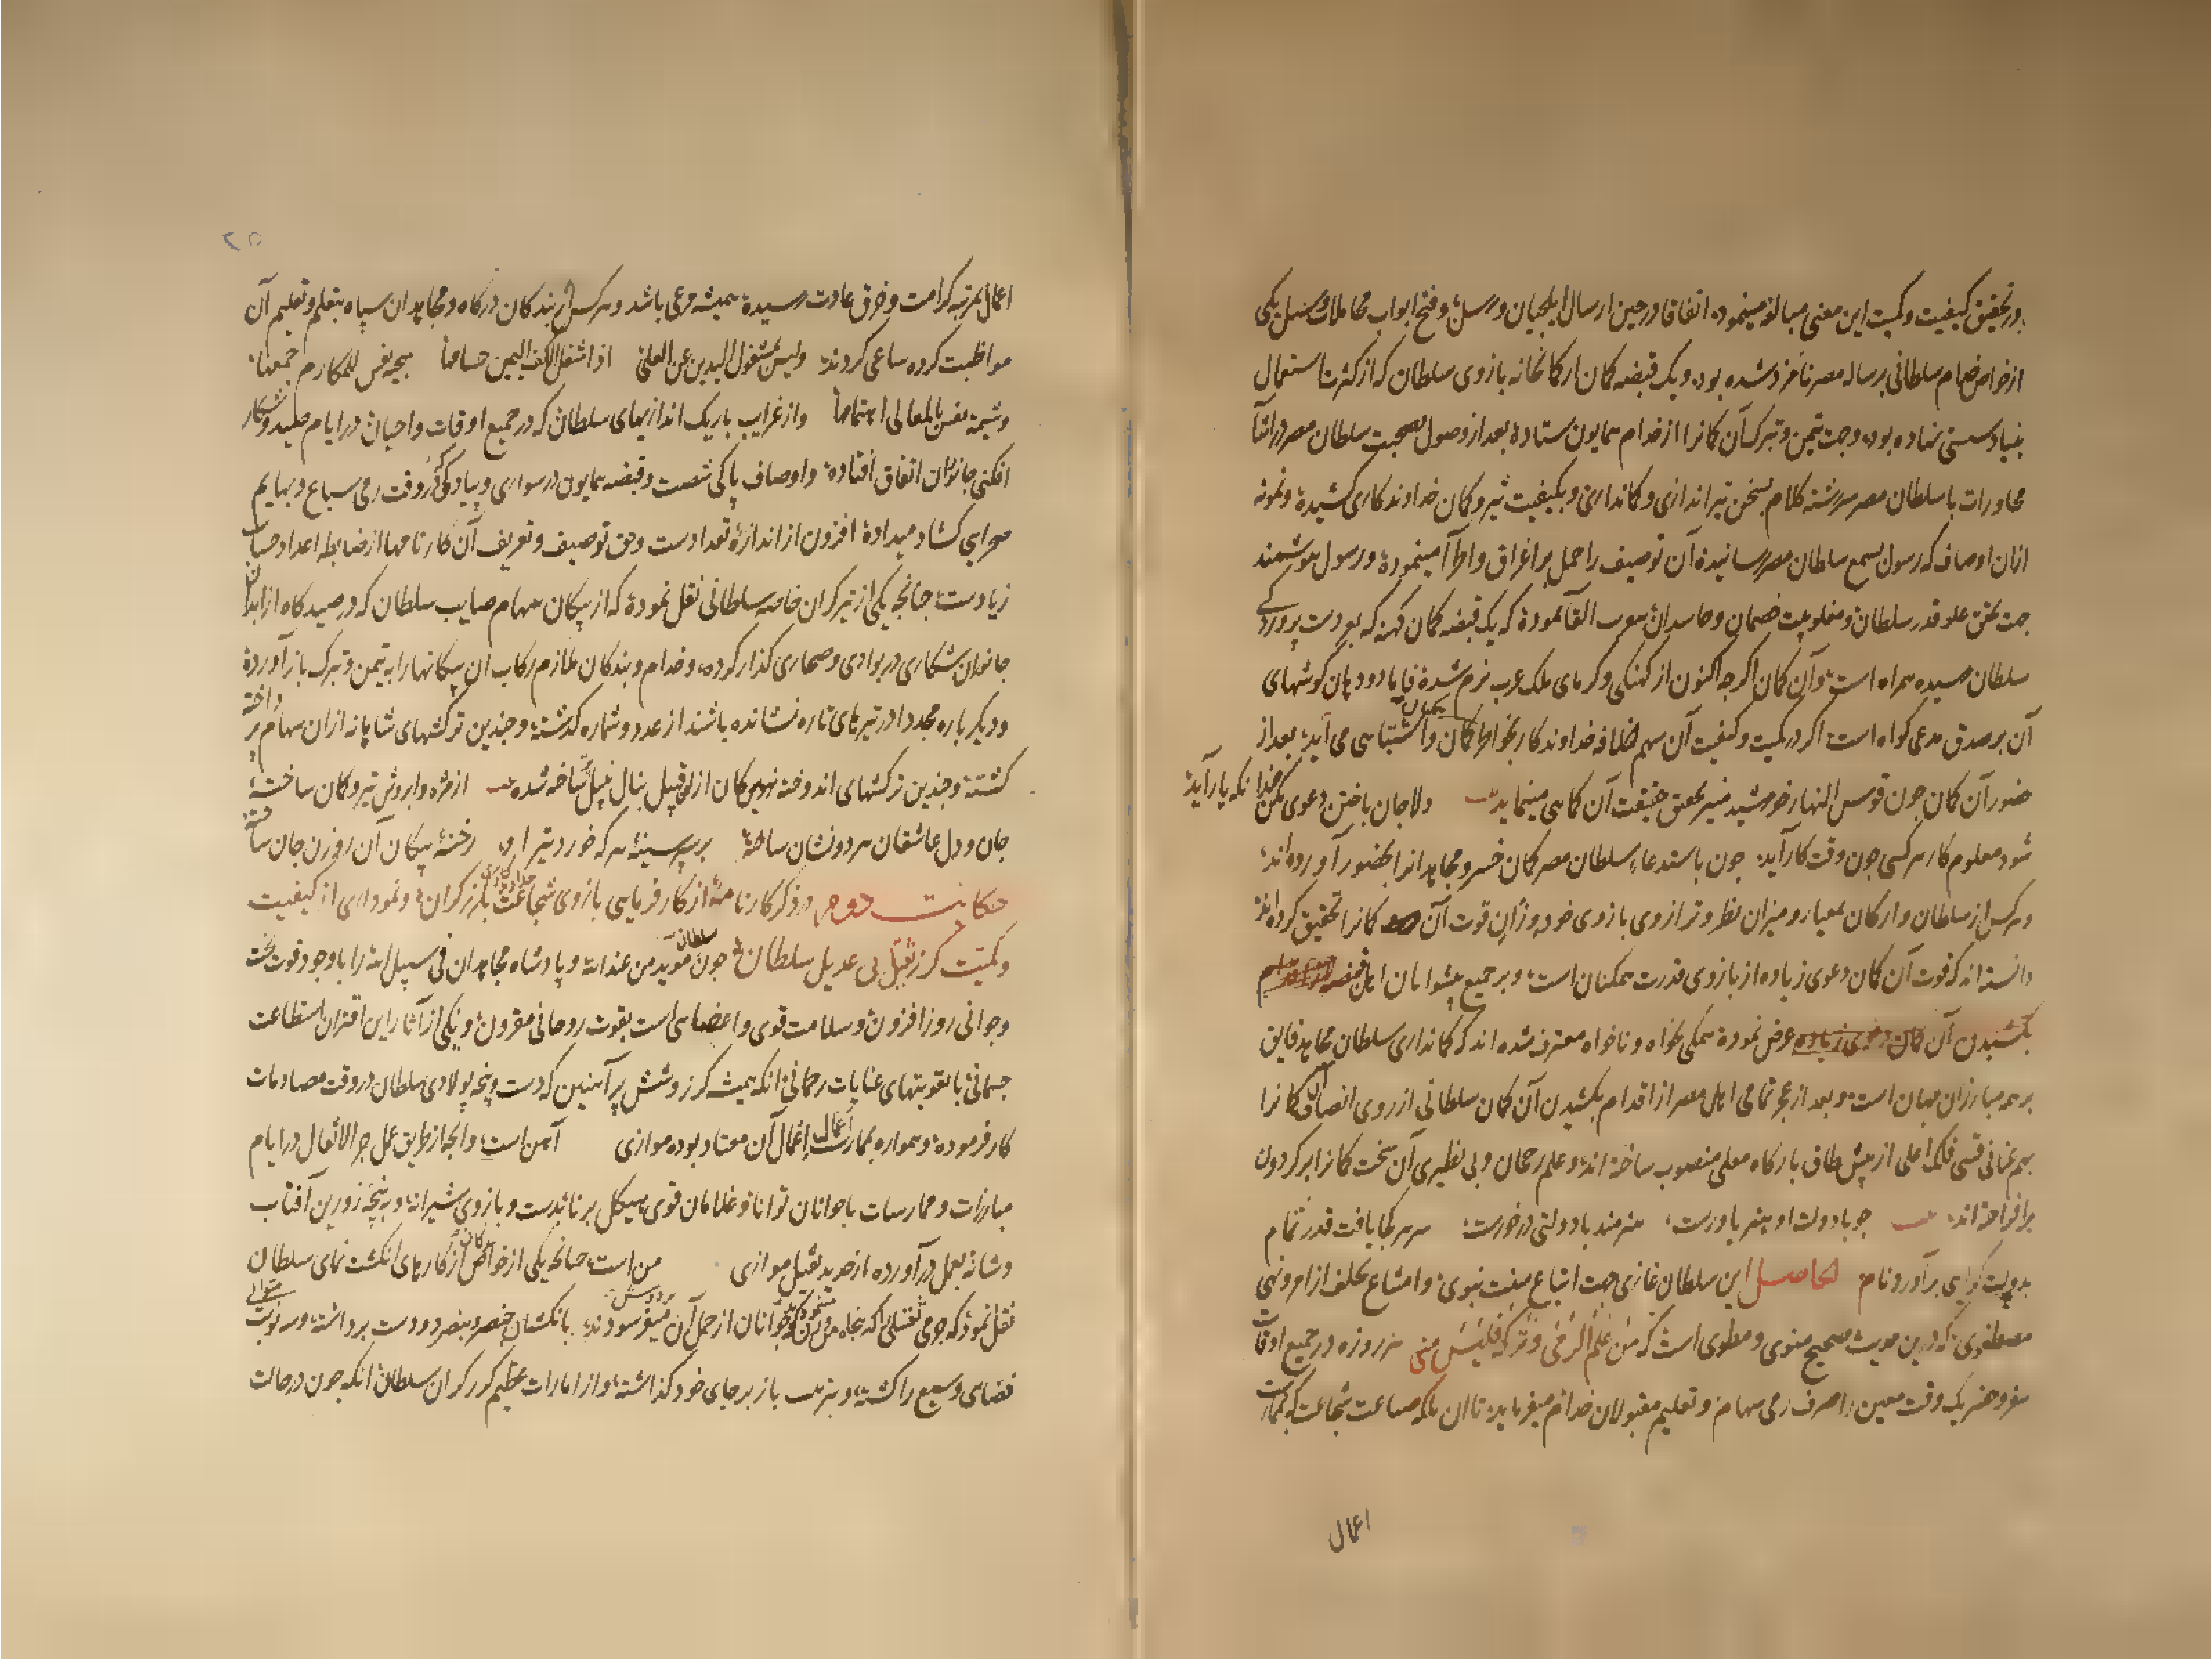 در تحقیق کیفیت و کمیت این معنی مبالغه مینموده اتفاقا در حین ارسال ایلچیان و رسل و فتح ابواب مجاملات و سبل یکی
از خواص خدام سلطانی برساله مصر نامزد شده بود و یک قبضه کمان از کمانخانه بازوی سلطان که از کثرت استعمال
بنیاد سستی نهاده بود و جهت تیمن و تبرک آن کمانرا از خدام همایون ستاده بعد از وصول بصحبت سلطان مصر در اثنا
محاورات با سلطان مصر سررشته کلام بسخن تیراندازی و کمانداری و بکیفیت تیر و کمان خداوندکاری کشیده و نمونه
ازان اوصاف که رسول بسمع سلطان مصر رسانیده آن توصیف را حمل بر اغراق و اطرآ مینموده و رسول هوشمند
جهت علو قدر سلطان و مغلوبیت خصمان و حاسدان القآ نموده که یک قبضه کمان کهنه که دست پرورده
سلطان همراه است و آن کمان اکرچه اکنون از کهنکی و کرمای ملک عرب نرم شده دو دهان کوشهای
آن بر صدق مدعی کواه است اکر در کمیت و کیفیت آن سهم خداوندکار بخاطر کمان و اشتباهی می آید بعد از
حضور آن کمان چون قوس النهار خورشید منیر حقیقت آن کماهی مینماید دلا جان باختن دعوی مکن فردا که یار آید
شود معلوم کار هر کسی چون وقت کار آید چون باستدعاء سلطان مصر کمان خسرو مجاهدانرا بحضور آورده اند
و هر کس از سلطان و ارکان بمعیار و میزان نظر و ترازوی بازوی خود قوت آن کمانرا تحقیق کرده اند
دانسته اند که قوت آن کمان دعوی زیاده از بازوی قدرت همکنان است و بر جمیع پیشوایان اهل
بکشیدن آن کمان عرض نموده همکی خواه و ناخواه معترف شده اند که کمانداری سلطان مجاهد فایق
بر همه مبارزان جهان است و بعد از عجز تمامی اهل مصر از اقدام بکشیدن آن کمان سلطانی از روی انصاف آن کمانرا
بسم عنانی قسی فلک اعلی از پیش طاق بارکاه معلی منصوب ساخته اند و علم رجحان و بی نظیری آن سخت کمانرا بر کردون
برافراخته اند چو با دولت او هنر یاورست هنرمند با دولتی درخورست هنر هر کجا یافت قدر تمام
بدولت خدایی برآورد نام الحاصل این سلطان غازی جهت اتباع سنت نبوی و امتناع تخلف از امر و نهی
مصطفوی که درین حدیث صحیح منوی و مطوی است که مَنْ عَلِمَ الرَّمْیَ وَ تَرَکَهُ فَلَیْسَ مِنّی هر روزه در جمیع اوقات
سفر و حضر یک وقت معین را صرف رمی سهام و تعلیم مقبولان خدام میفرماید تا ان ملکه صناعت شجاعت که بممارست
اعمال
۲۵
اعمال بمرتبه کرامت و خرق عادت رسیده همیشه مرعی باشد و هر کس از بندکان درکاه و مجاهدان سپاه بتعلم و تعلیم آن
مواظبت کرده ساعی کردند ولیس بمشغول الیدین عن العلی اذا اشغل الکف الیمین حسامها سجیه نفس للمکارم جمعها
و شیمة نفس بالمعالی اهتمامها و از غرایب باریک اندازیهای سلطان که در جمیع اوقات و احیان در ایام صید و شکار
افکنی جانوران اتفاق افتاده و اوصاف پاکی شصت و قبضه همایون در سواری و پیادکی که در وقت رمی سباع و بهایم
صحرایی کشاد میداده افزون از اندازه تعدادست و حق توصیف و تعریف آن کارنامها از ضابطه اعداد حساب
زیادست چنانچه یکی از تیرکران خاصه سلطانی نقل نموده که از پیکان سهام صایب سلطان که در صیدکاه از ابدان
جانوران شکاری در بوادی و صحاری کذار کرده و خدام و بندکان ملازم رکاب آن پیکانها را به تیمن و تبرک باز آورده
و دیکر باره مجددا در تیرهای تازه نشانده باشند از عدد و شماره کذشته و چندین ترکشهای شاهانه ازان سهام پرداخته
کشته و چندین ترکشهای اندوخته کان از قبیل بنال نیل ساخته شده از مژه و ابروش تیر و کمان ساخته
جان و دل عاشقان هر دو نشان ساخته بر سینه هر که خورد تیر او رخنه پیکان آن روزن جان ساخته
حکایت دوم در ذکر کارنامه از کارفرمایی بازوی شجاعت بکرز کران و نموداری از کیفیت
و کمیّت کرز ثقیل بی عدیل سلطان چون سلطان مؤید من عند الله و پادشاه مجاهدان فی سبیل الله را با وجود قوت بخت
و جوانی روزافزون و سلامت قوی و اعضای است بقوت روحانی مقرون و یکی از آثار این اقتران استطاعت
جسمانی با تقویتهای عنایات رحمانی انکه همیشه کرز و شش پر آهنین که دست و پنجه پولادی سلطان در وقت مصادمات
کار فرموده و همواره بممارست اعمال آن معتاد بوده موازی آهن است و انجا از طریق عمل جر الاثقال در ایام
مبارزات و ممارسات با جوانان توانا و غلامان قوی هیکل برنا بدست و بازوی شیرانه و به پنجه زورین آفتاب
و شانه بعمل درآورده از حدید ثقیل موازی من است چنانچه یکی از خواص از کارهای انکشت نمای سلطان
نقل نمود که جرمی ثقیل را که پنجاه من جوانان از حمل آن میفرسودند بانکشتان خنصر و بنصر دو دست برداشته و سه نوبت
فضای وسیع را کشته و بر باز بر جای خود کذاشته و از امارات عظیم کرز کران سلطان انکه چون در حالت